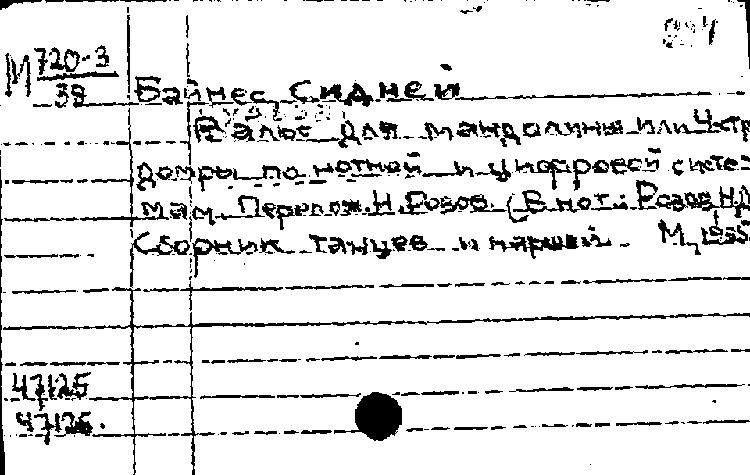 М 720-3
38
Байнес, Сидней
Вальс для мандолины или 4-стр
домры по нотной и цифровой систе-
мам. Перелож. Н. Розов. (В нот.: Розов Н.
Сборник танцев и маршей. М., 1935
47125
47126.